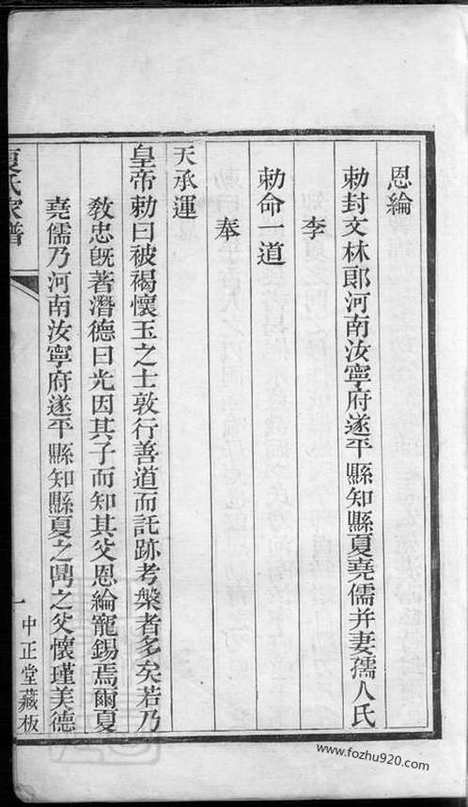 恩綸
勅封文林郎河南汝寧府遂平縣知縣夏堯儒并妻孺人氏
李
勅命一道
奉
天承運
皇帝勅曰被褐懷玉之士敦行善道而託跡考槃者多矣若乃
敎忠旣著潛德曰光因其子而知其父恩綸寵錫焉爾夏
堯儒乃河南汝寧府遂平縣知縣夏之之父懷瑾美德
夏氏家譜
一
中正堂藏板
www.fozhu920.com